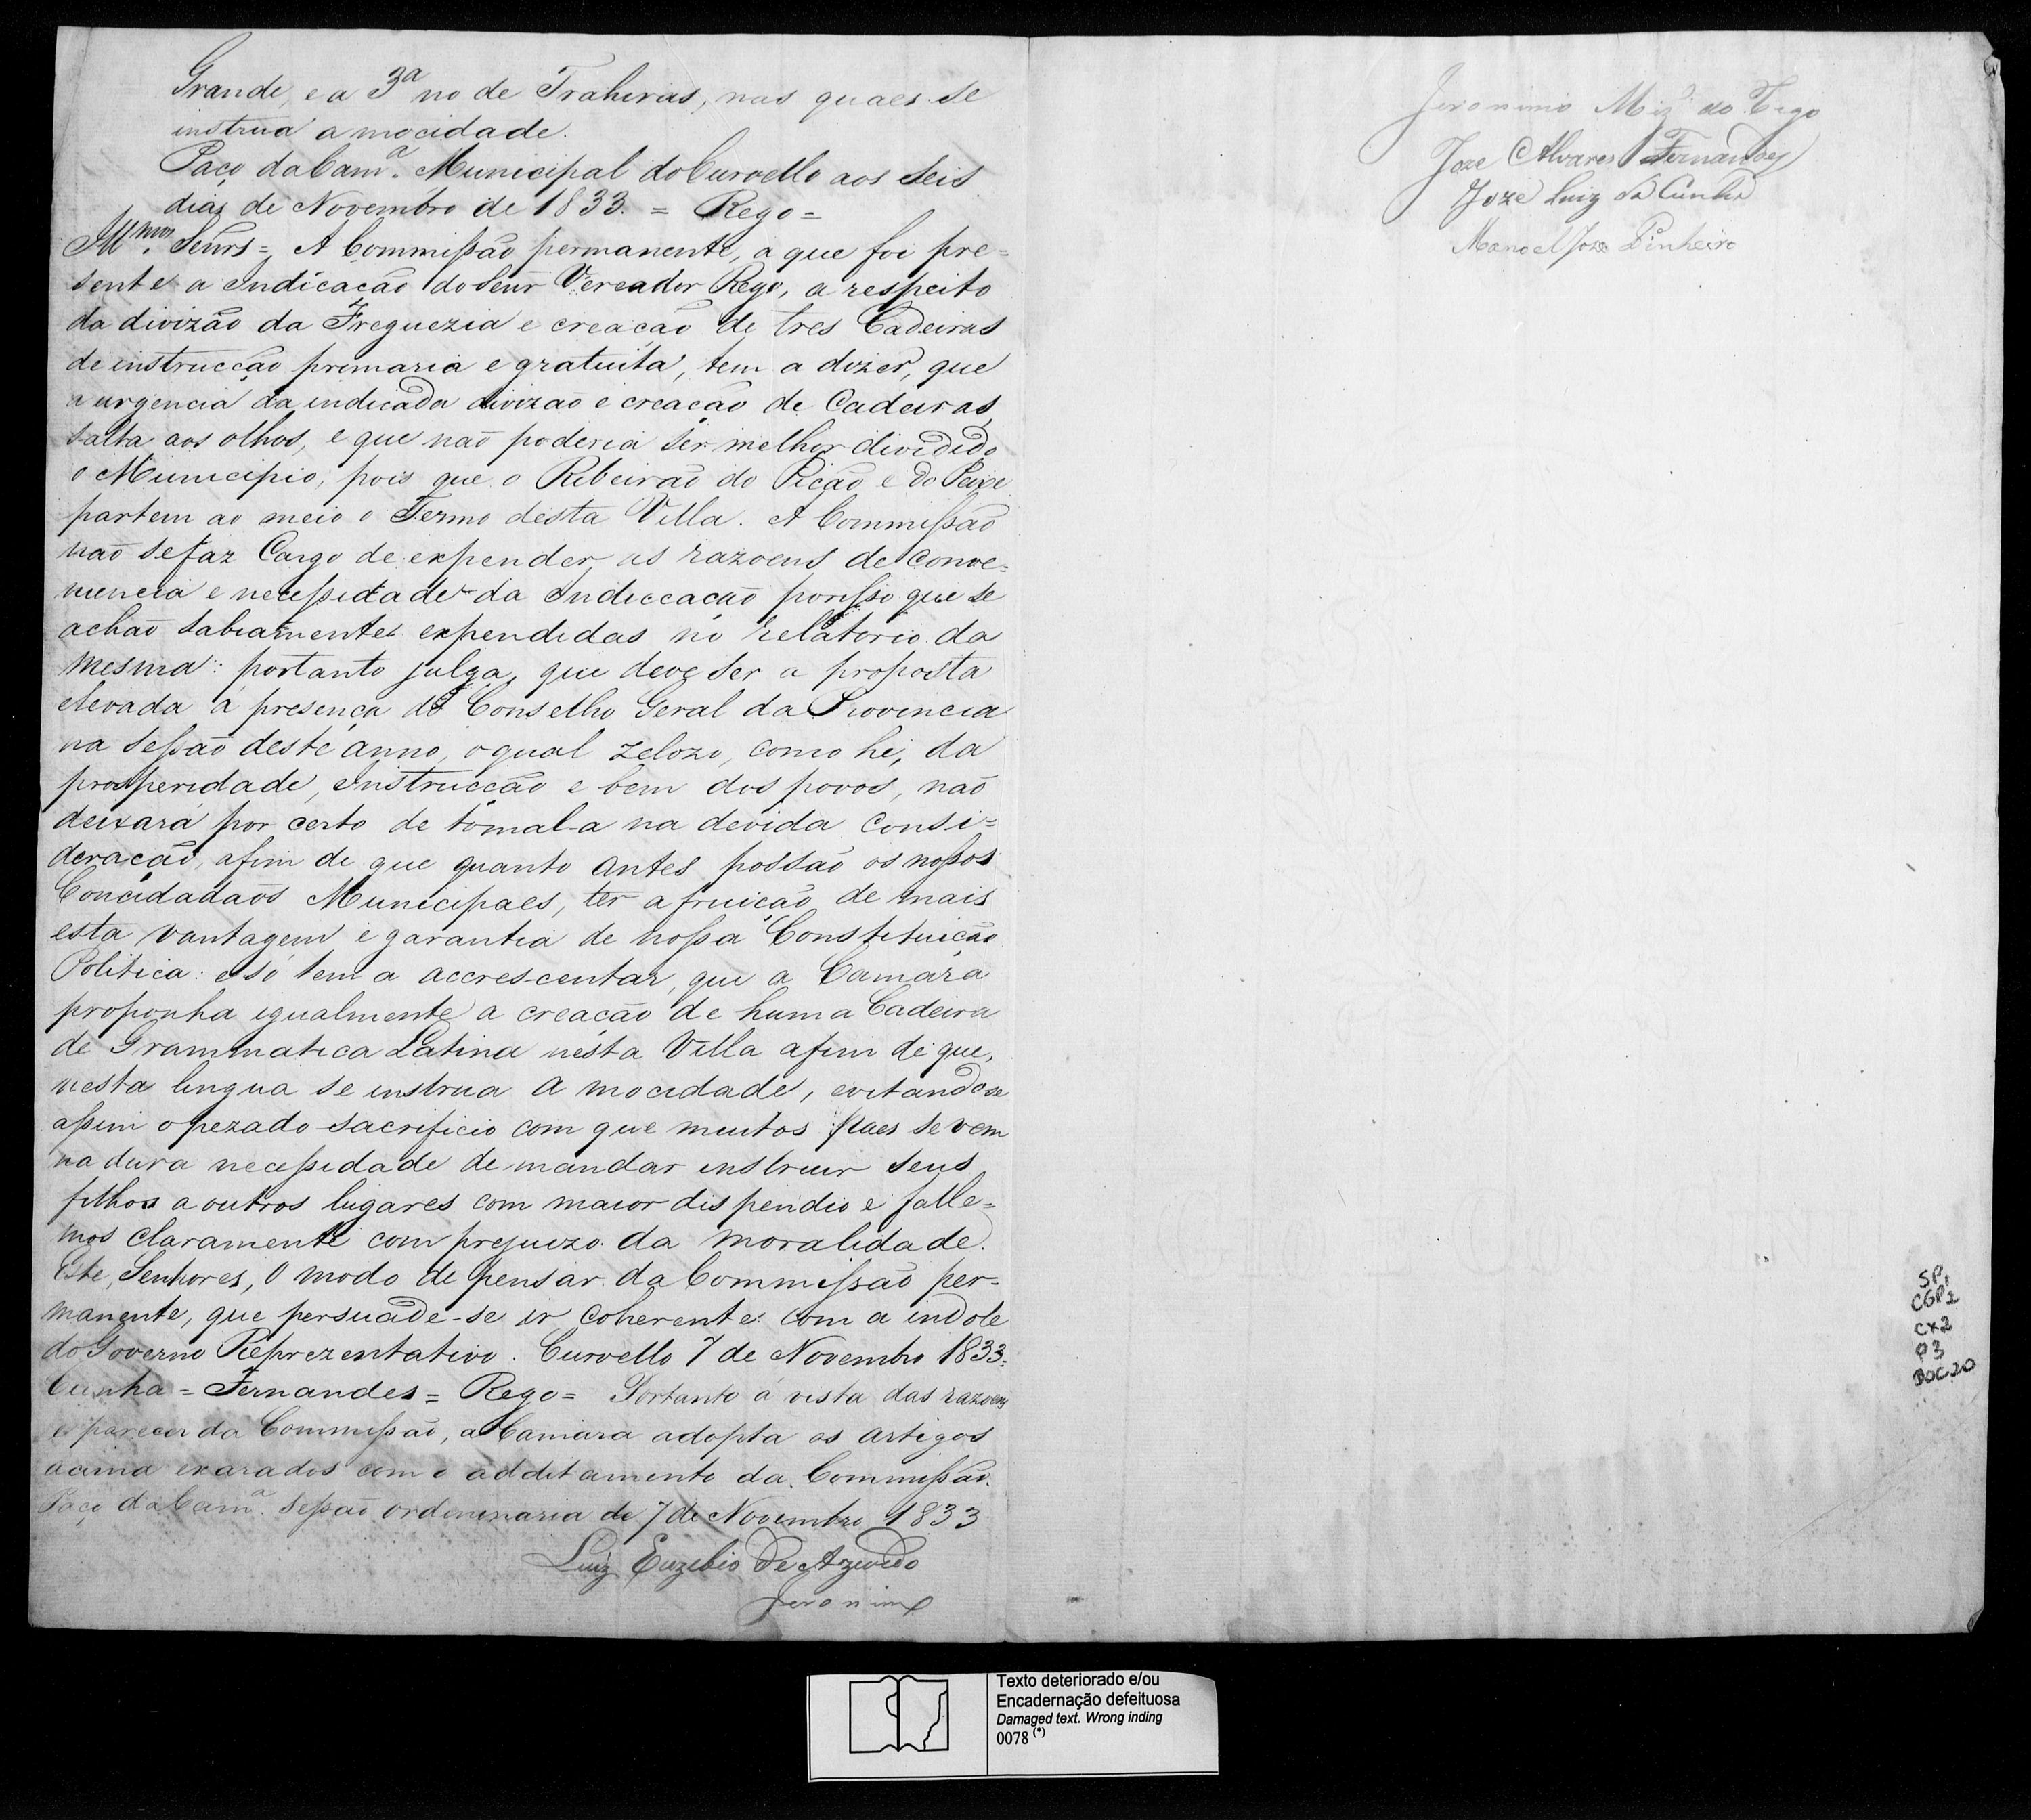 Grande, e a 3ª no de Trahiras, nas quaes se
instrua a mocidade.
Paço da Camª. Municipal do Curvello aos seis
dias de Novembro de 1833. = Rego =
Senrs = A Commissão permanente, a que foi pre=
sente a Indicação do Senr Vereador Rego, a respeito
da divizão da Freguezia e creação de tres Cadeiras
de instrucção primaria e gratuita, tem a dizer, que
a urgencia da indicada divizão e creação de Cadeiras,
salta aos olhos, e que não poderia ser melhor dividido
o Municipio, pois que o Ribeirão do Picão e do Peixe
partem ao meio o Termo desta Villa. A Commissão
não se faz Cargo de expender as razoens de conve=
niencia e necessidade da Indiccação porisso que se
achão sabiamente expendidas no relatorio da
mesma: portanto julga, que deve ser a proposta
elevada á presença do Conselho Geral da Provincia
na sessão deste anno, o qual zelozo, como hé, da
prosperidade, instrucção e bem dos povos, não
deixará por certo de tomal-a na devida consi=
deração, afim de que quanto antes possão os nossos
Concidadaõs Municipaes, ter a fruição de mais
esta vantagem e garantia de nossa Constituição
Politica: e só tem a accrescentar, que a Camara
proponha igualmente a creação de huma Cadeira
de Grammatica Latina nésta Villa afim de que,
nesta lingua se instrua a mocidade, evitando se
assim o pezado sacrificio com que muitos Paes se vem
na dura necessidade de mandar instruir seus
filhos a outros lugares com maior dispendio e falle=
mos claramente com prejuizo da moralidade.
Este, Senhores, o modo de pensar da Commissão per=
manente, que persuade-se ir coherente com a indole
do Governo Reprezentativo. Curvello 7 de Novembro 1833=
Cunha = Fernandes = Rego = Portanto á vista das razoens
e parecer da Commissão, a Camara adopta os artigos
acima exarados com o additamento da Commissão.
Paço da Camª. Sessão ordeninaria de 7 de Novembro 1833
Luiz Euzebio de Azevedo
Jeronimo
Jeronimo do Rego
Joze Alvares Fernandes
Joze Luiz da Cunha
Manoel Joze Pinheiro
SP1
CGP2
CX2
P3
DOC.20
Texto deteriorado e/ou
Encadernação defeituosa
Damaged text. Wrong inding
0078 (*)